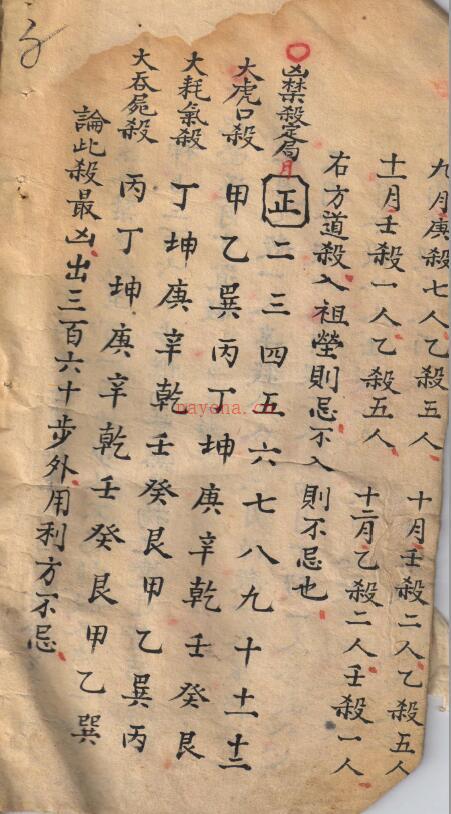 九月庚殺七人乙殺五人 十月壬殺二人乙殺五人
十一月壬殺一人乙殺五人 十二月乙殺二人壬殺一人
右方道殺入祖塋則忌不入則不忌也
凶禁殺定局月 正二三四五六七八九十十一十二
大虎口殺 甲乙巽丙丁坤庚辛乾壬癸艮
大耗氣殺 丁坤庚辛乾壬癸艮甲乙巽丙
大吞屍殺 丙丁坤庚辛乾壬癸艮甲乙巽
論此殺最凶出三百六十步外用利方不忌
nayona.cn